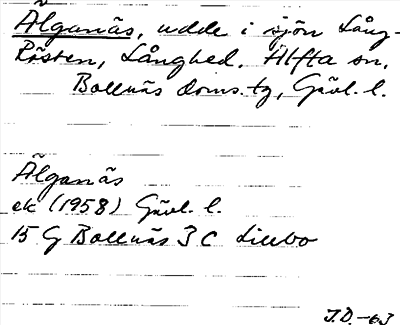 Älganäs, udde i sjön Lång-
Rösten, Långhed. Alfta sn,
Bollnäs doms. tg, Gävl. l.
Älganäs
ek (1958) Gävl. l.
15 G Bollnäs 3 C Lillbo
J.D. -63